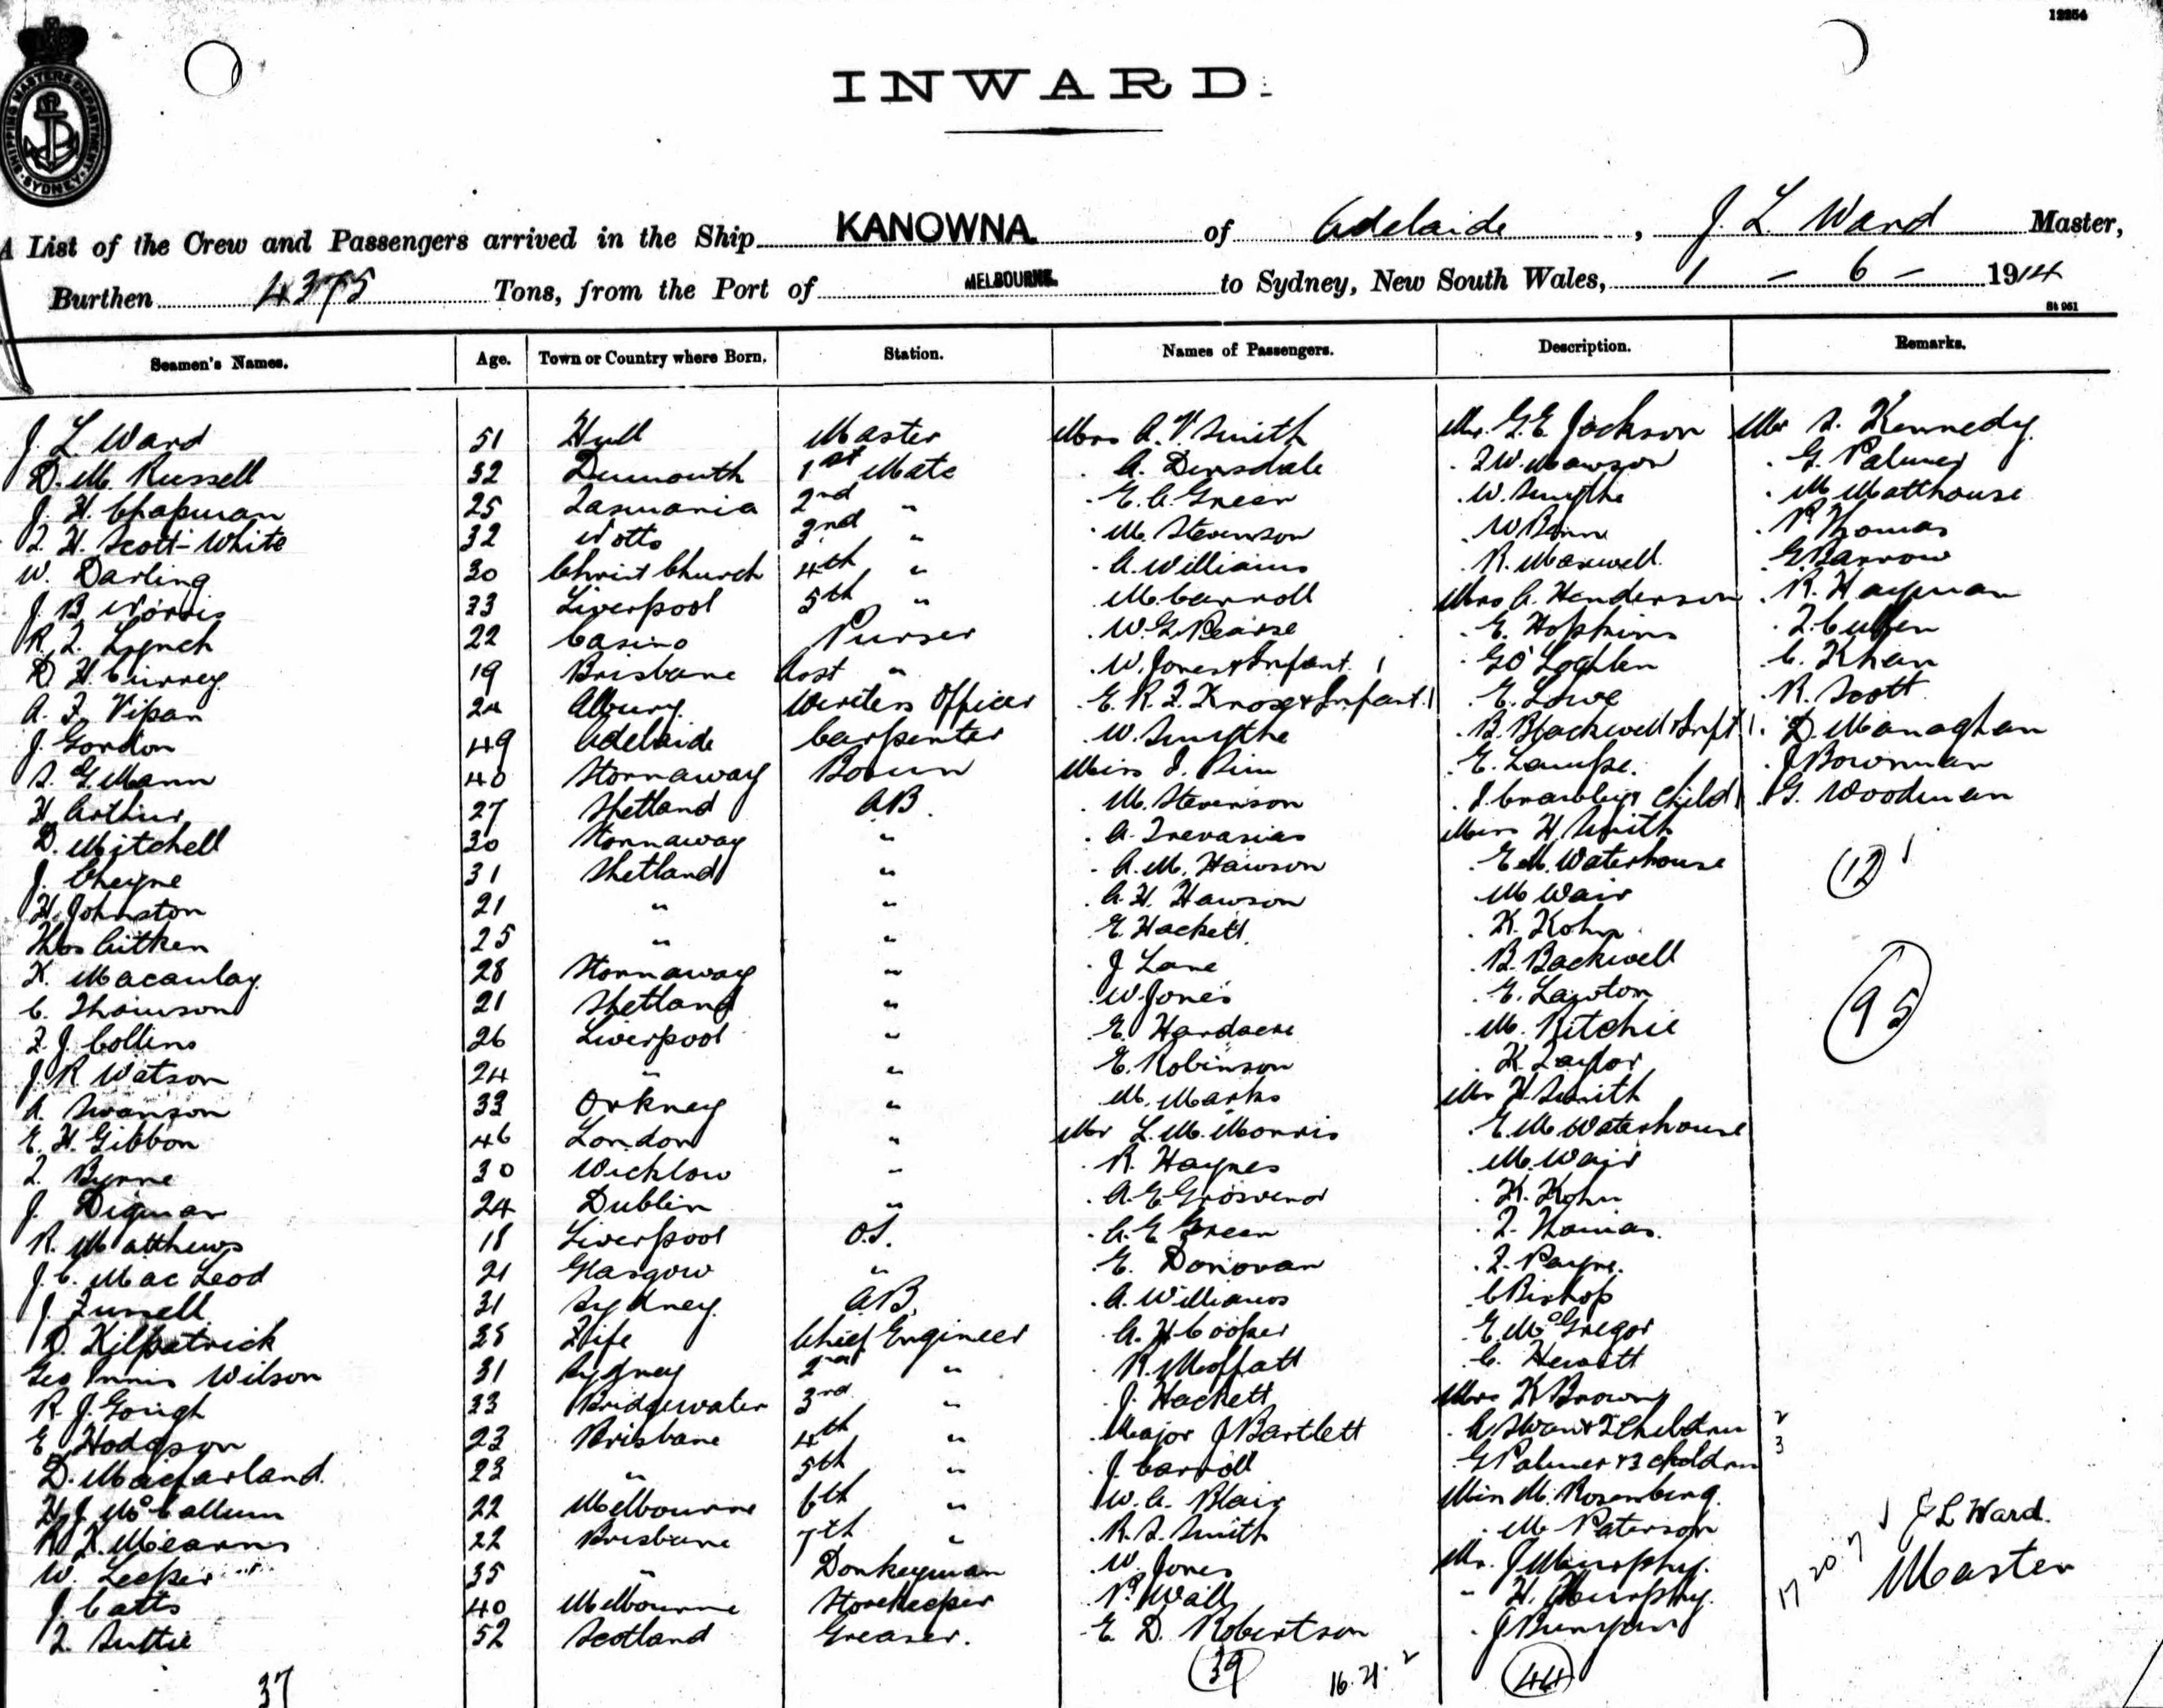 12254
SHIPPING MASTERS DEPARTMENT SYDNEY
INWARD
A List of the Crew and Passengers arrived in the Ship KANOWNA of Adelaide, J. L. Ward Master,
Burthen 4375 Tons, from the Port of MELBOURNE to Sydney, New South Wales, 1 - 6 - 1914
St 961
Seamen's Names. Age. Town or Country where Born. Station. Names of Passengers. Description. Remarks.
J. L Ward 51 Hull Master Mrs A. V. Smith Mr. G. E. Jackson Mr S. Kennedy
D. M. Russell 32 1st Mate . A. Dinsdale . F W. Mawson . G. Palmer
J. H. Chapman 25 Tasmania 2nd " . E. A. Green . W. Smythe . M Matthouse
T. H. Scott-White 32 Notts 3rd " . M. Stevenson . W Bonn . P. Thomas
W. Darling 30 Christ Church 4th " . A. Williams . R. Maxwell . G Barrow
J. B. Norris 23 Liverpool 5th " . M. Carroll Mrs A. Henderson . R. Hayman
R. T. Lynch 22 Casino Purser . W. G. Pearse . E. Hopkins . T. Cullen
D. H. Currey 19 Brisbane Asst " . W. Jones & Infant 1 . G O'Loghlen . C. Khan
A. F. Vipan 24 Albury Wireless Officer . E. R. F. Knox & Infant 1 . E. Lowe . R. Scott
J. Gordon 49 Adelaide Carpenter . W. Smythe . B. Blackwell & Inft 1 . D. Managhan
S. G. Mann 40 Stornaway Bosun Miss I. Sim . E. Lampe. . J Bowman
H. Arthur 27 Shetland A.B. . M. Stevenson . I. Crawley & Child 1 . G. Woodman
D. Mitchell 30 Stornaway " . A. Trevascus Miss H. Smith
J. Cheyne 31 Shetland " . A. M. Hawson . E M. Waterhouse 12 1
H. Johnston 21 " " . A. H. Hawson . M Wair
Thos Aitken 25 " " . E. Hackett . K. Kohn
K. Macaulay 28 Stornaway " . J Lane . B. Backwell
C. Thomson 21 Shetland " . W. Jones . E. Lawton 95
F. J. Collins 26 Liverpool " . E. Hardacre . M. Ritchie
J. R Watson 24 " " . E. Robinson . K. Taylor
A. Swanson 33 Orkney " . M. Marks Mr H. Smith
E. H. Gibbon 46 London " Mr L. M. Morris . E. M Waterhouse
T. Byrne 30 Wicklow " . R. Haynes . M. Wair
J. Digman 24 Dublin " . A. E Grosvenor . K. Kohn
R. Matthews 18 Liverpool O.S. . A. E Green . T. Thomas.
J. C. Mac Leod 21 Glasgow " . E. Donovan . F. Payne.
J. Fussell 31 Sydney A.B. . A. Williams . C Bishop
D. Kilpatrick 38 Fife Chief Engineer . A. H Cooper . E. McGregor
Geo Innis Wilson 31 Sydney 2nd " . R. Moffatt . C. Hewitt
R. J. Gough 33 Bridgewater 3rd " . J. Hackett Mrs K Brown
E Hodgson 23 Brisbane 4th " . Major J Bartlett . A Swan & 2 Children 2
D. Macfarland 23 " 5th " . J. Carroll . G Palmer & 3 children 3
H. J. McCallum 22 Melbourne 6th " . W. A. Blair Miss M. Rosenberg.
R K. Mearns 22 Brisbane 7th " . R. S. Smith . M Paterson J L Ward.
W. Leeper 35 " Donkeyman . W. Jones Mr. J Murphy. 17 20 7 Master
J. Catts 40 Melbourne Storekeeper . P. Wall " H. Murphy.
T. Suttie 52 Scotland Greaser. . E. D. Robertson . J Bunyan
37 39 16.21.2 44